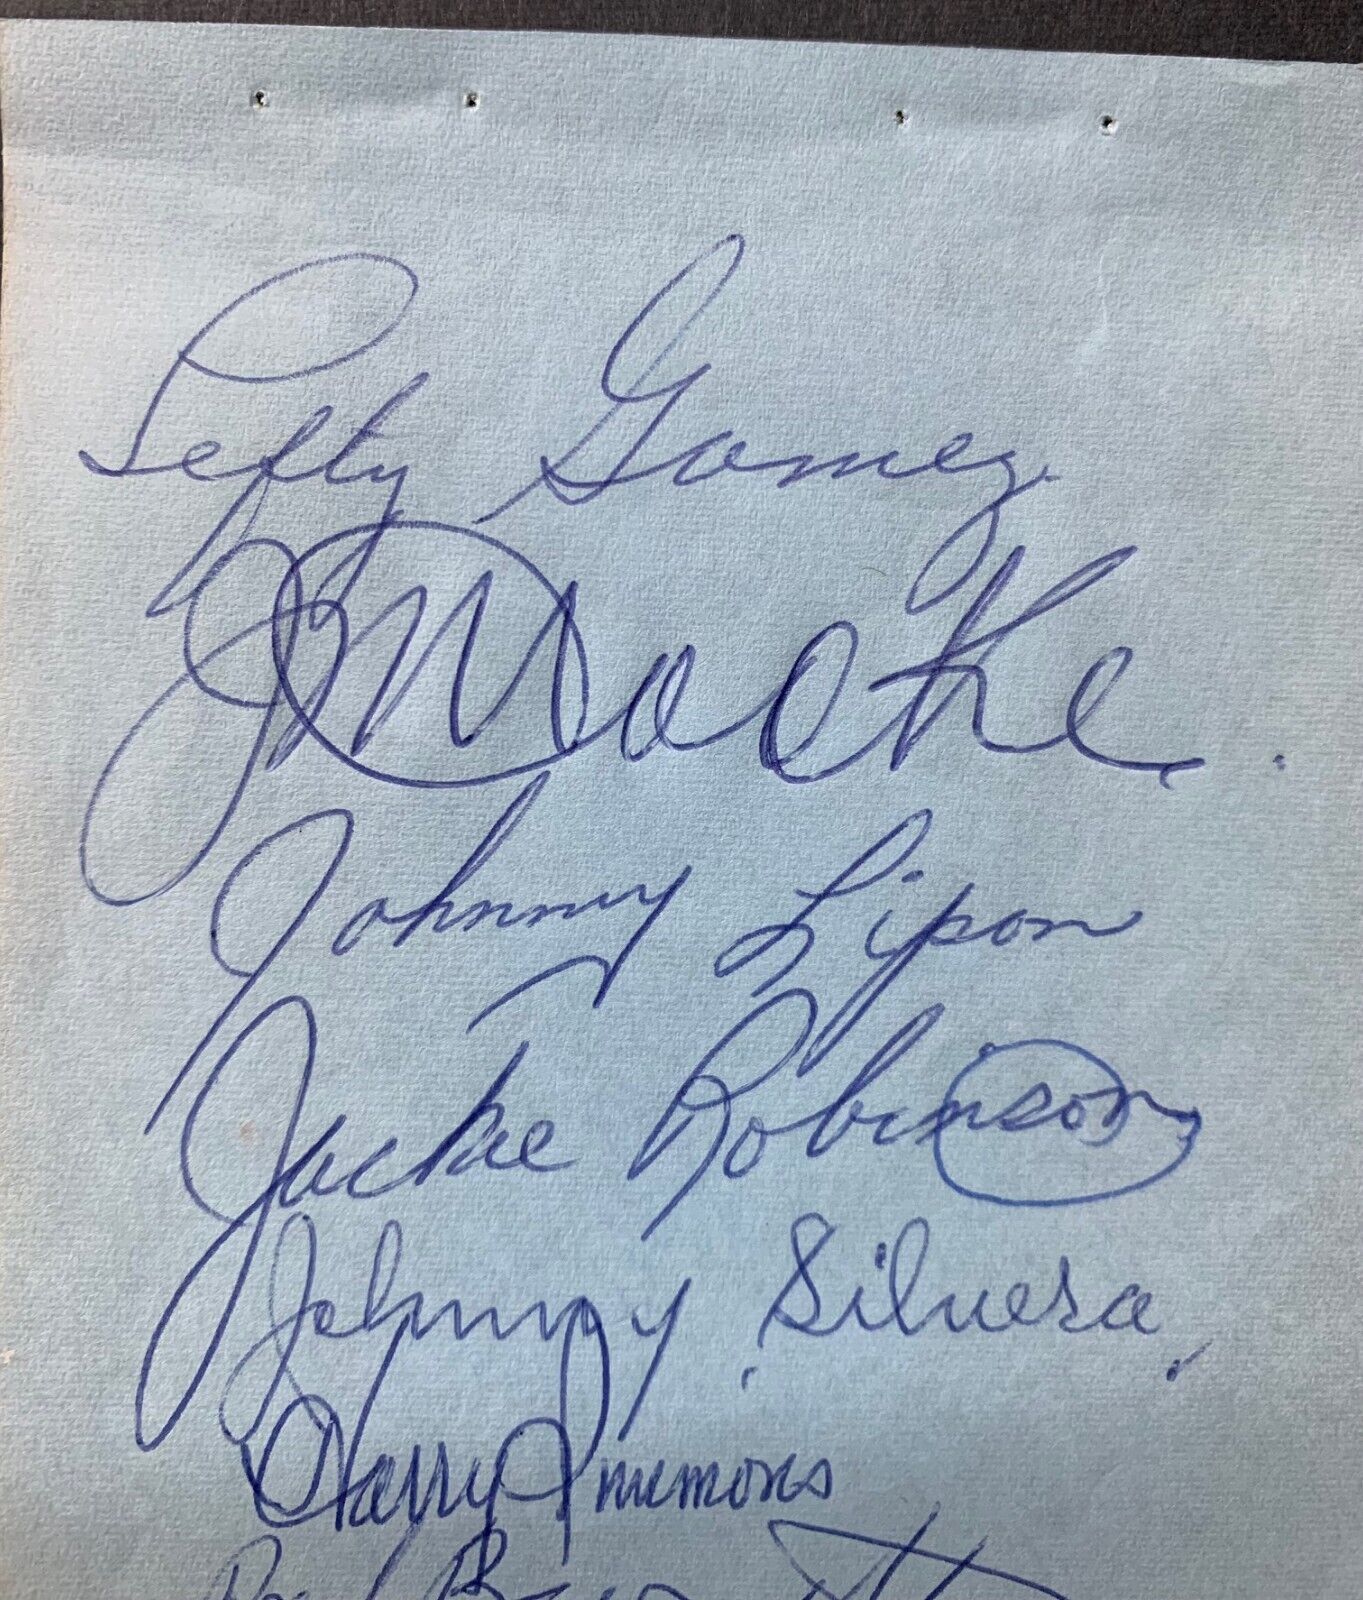 Lefty Gomez
J Mocke.
Johnny Lipon
Jackie Robinson
Johnny Silvera.
Harry Simmons